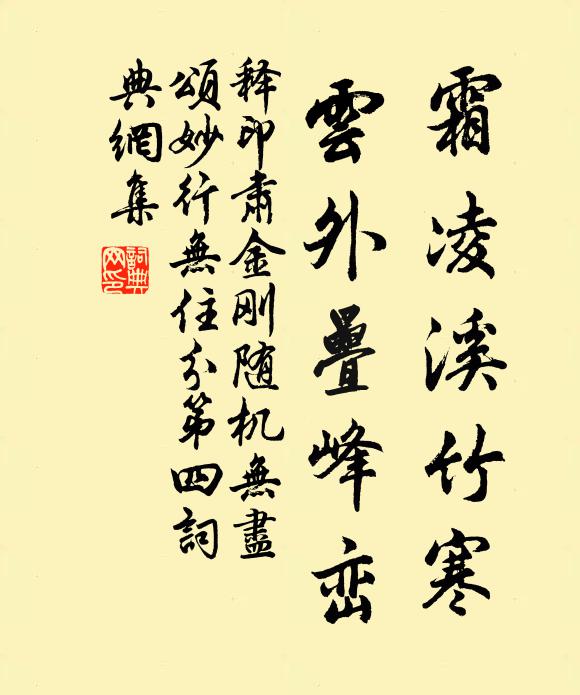 霜凌溪竹寒
雲外疊峰峦
释印肃金刚随机無盡
頌妙行無住分第四詞
典網集
詞典
网印